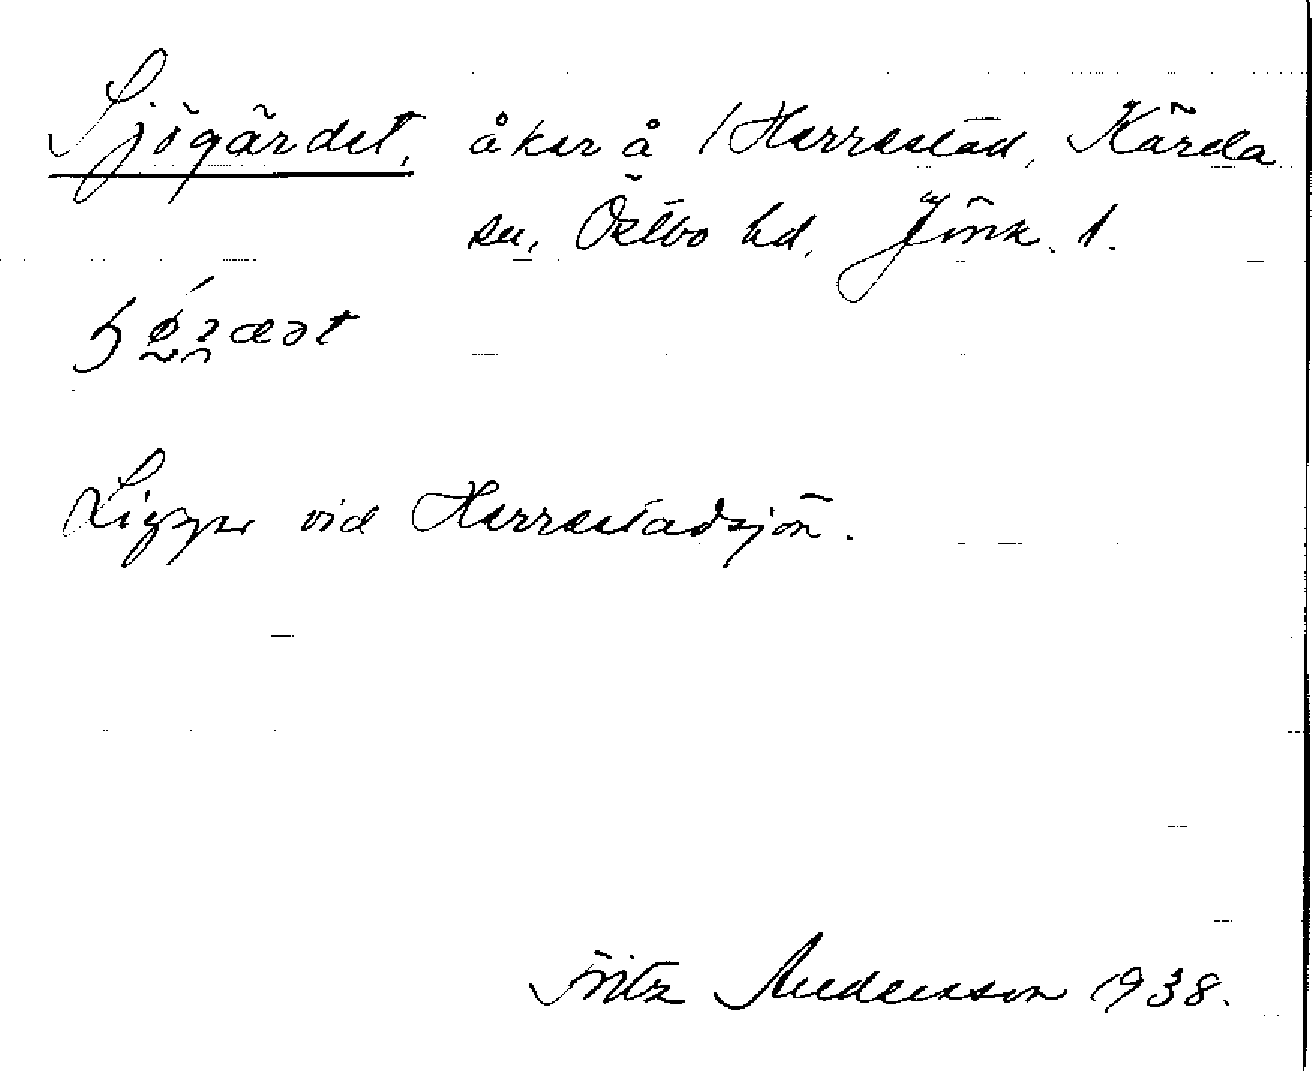 Sjögärdet, åker å /Herrestad, Kärda
sn, Östbo hd, Jönk. l.
Ligger vid Herrestadsjön.
Fritz Andersson 1938.